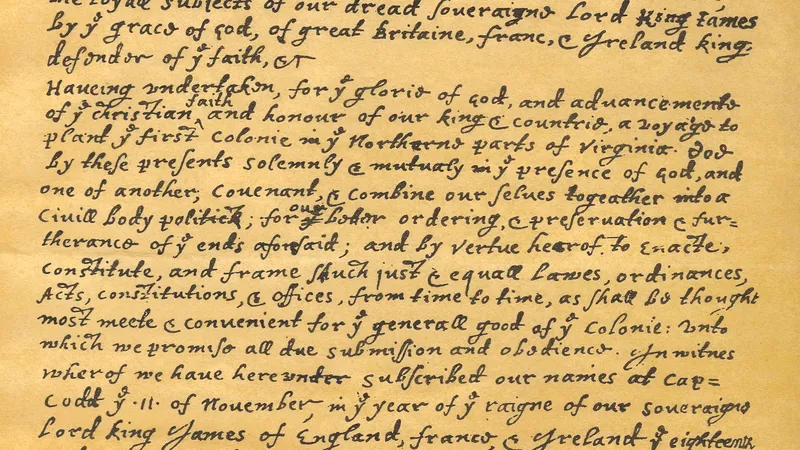 the loyall subjects of our dread soveraigne Lord King James
by yᵉ grace of god, of great Britaine, franc, & Ireland king,
defender of yᵉ faith, &c
Haveing undertaken, for yᵉ glorie of god, and advancemente
of yᵉ christian faith and honour of our king & countrie, a voyage to
plant yᵉ first colonie in yᵉ Northerne parts of Virginia. Doe
by these presents solemnly & mutualy in yᵉ presence of god, and
one of another, covenant, & combine our selves togeather into a
civill body politick; for our better ordering, & preservation & fur=
therance of yᵉ ends aforesaid; and by vertue hearof to Enacte,
constitute, and frame shuch just & equall Lawes, ordinances,
Acts, constitutions, & offices, from time to time, as shall be thought
most meete & convenient for yᵉ generall good of yᵉ Colonie: unto
which we promise all due submission and obedience. In witnes
wherof we have hereunder subscribed our names at Cap=
Codd yᵉ .11. of November, in yᵉ year of yᵉ raigne of our soveraigne
Lord king James of England, france, & Ireland yᵉ eighteenth